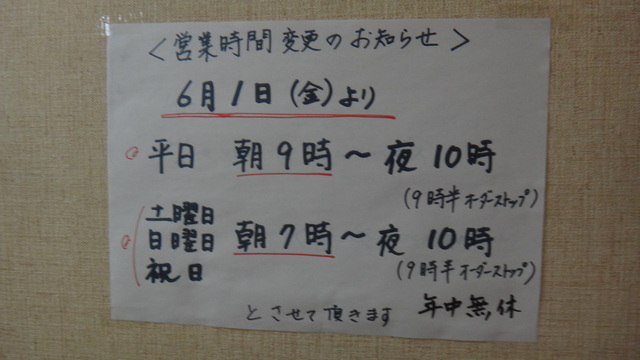 <営業時間変更のお知らせ>
6月1日(金)より
平日 朝9時〜夜10時
(9時半オーダーストップ)
土曜日
日曜日 朝7時〜夜10時
祝日
(9時半オーダーストップ)
とさせて頂きます 年中無休